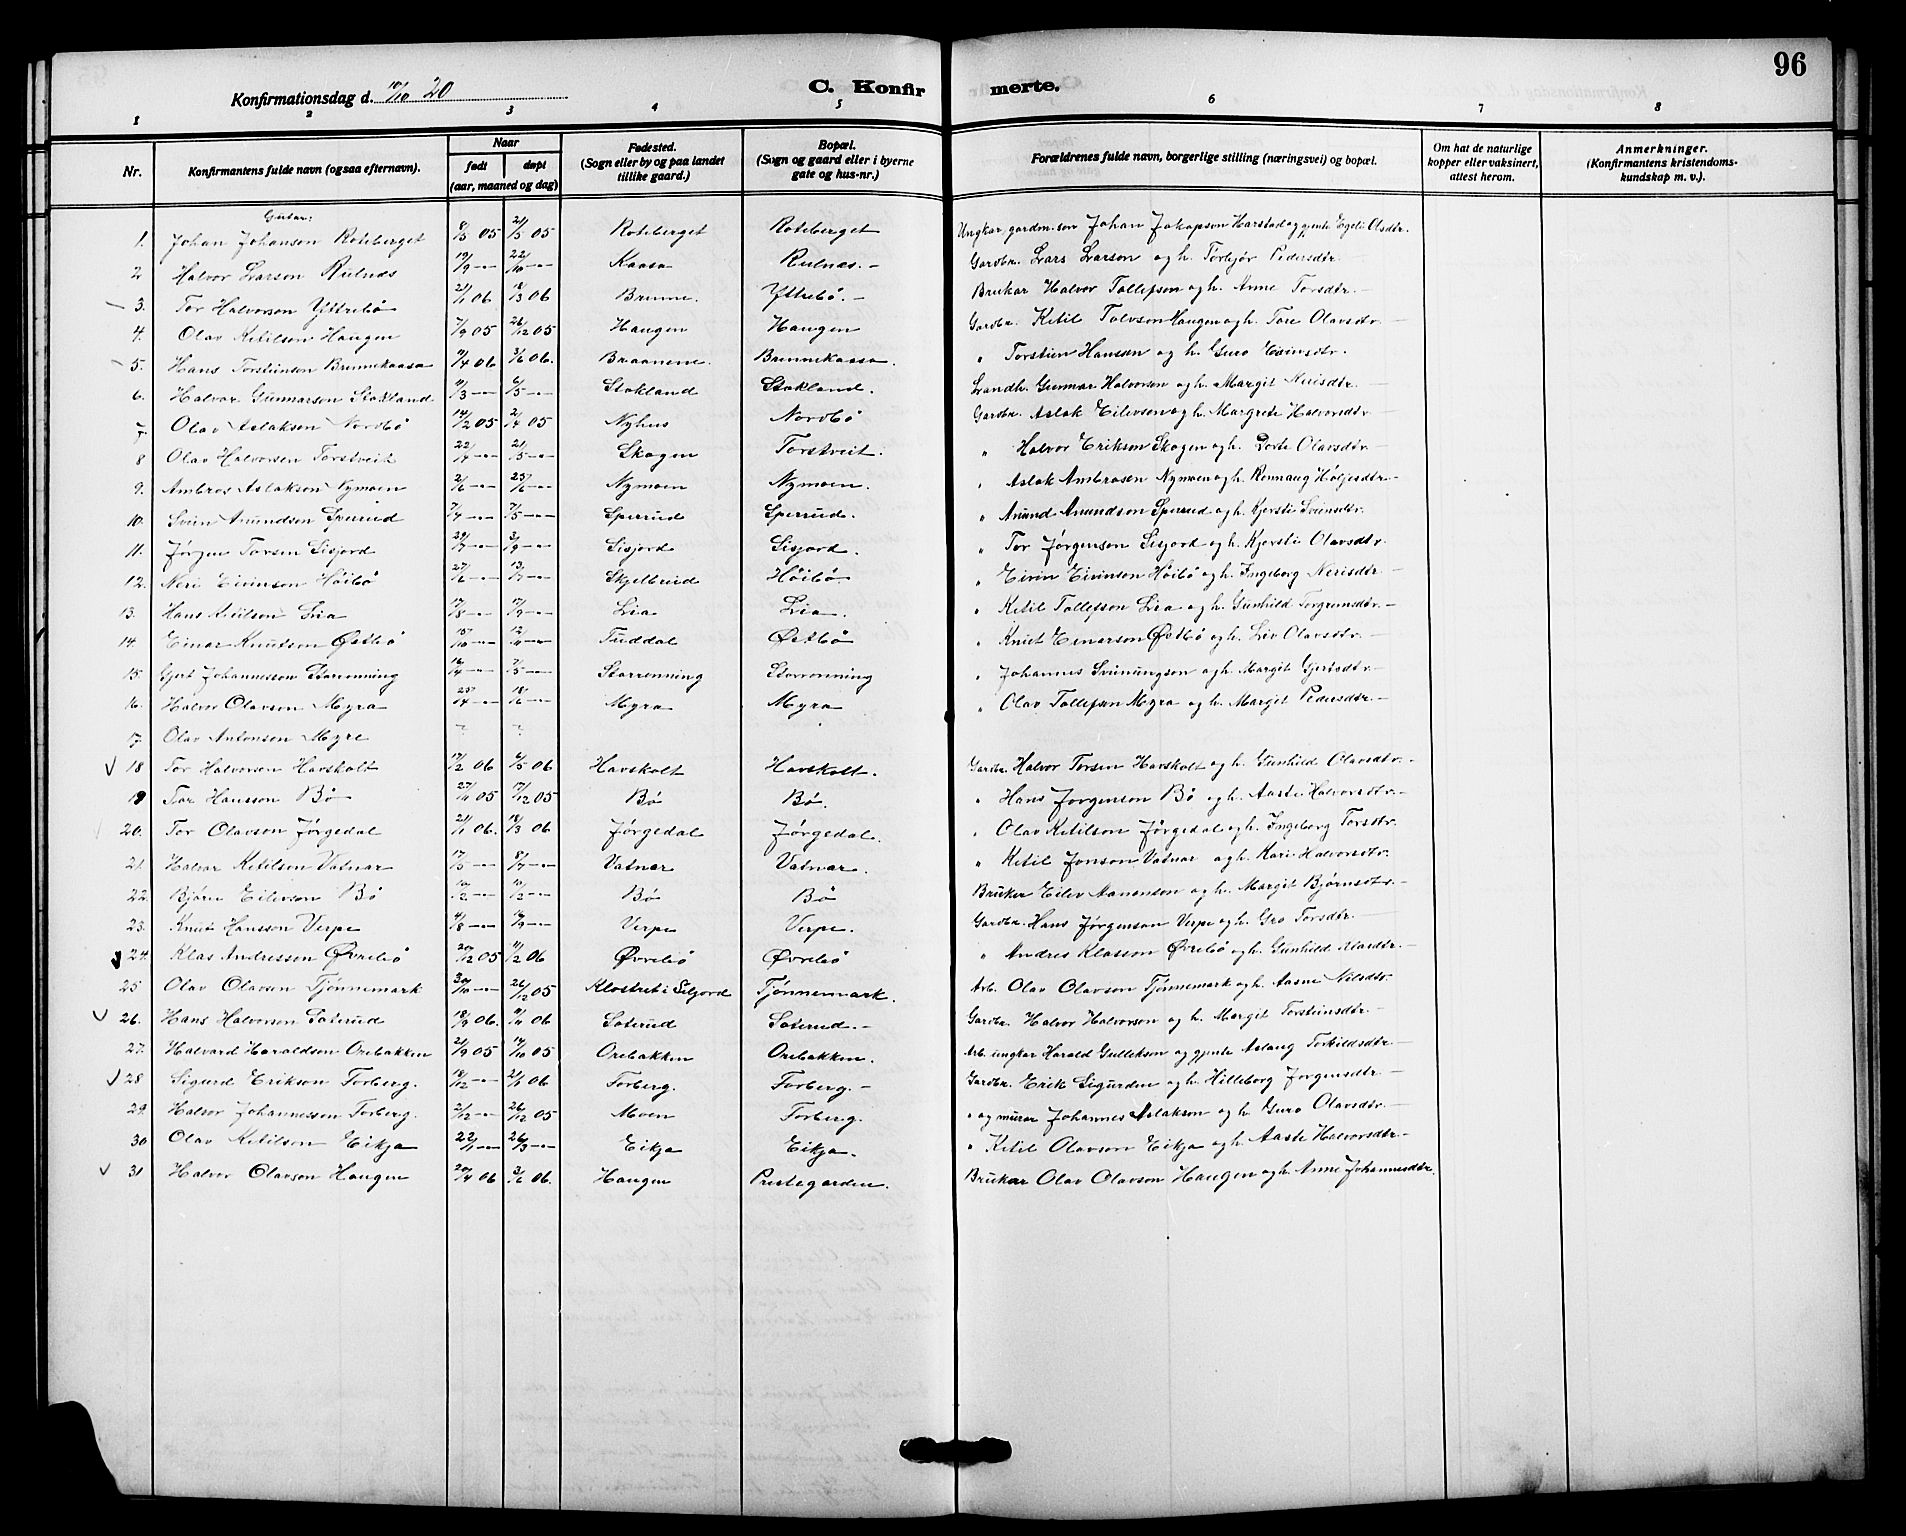 96
Konfirmationsdag d. 10/10 20
C. Konfirmerte.
1 2 3 4 5 6 7 8
Nr. Konfirmantens fulde navn (ogsaa efternavn). Naar født døpt (aar, maaned og dag) Fødested. (Sogn eller by og paa landet tillike gaard.) Bopæl. (Sogn og gaard eller i byerne gate og hus-nr.) Forældrenes fulde navn, borgerlige stilling (næringsvei) og bopæl. Om hat de naturlige kopper eller vaksinert, attest herom. Anmerkninger. (Konfirmantens kristendomskundskap m. v.).
Gutar:
1. Johan Johanson Roteberget 8/5 05 21/5 05 Roteberget Roteberget Ungkar, gardm.son Johan Jakopson Harstad og gjente Egeli Olsdtr.
2 Halvor Larson Rulnes 19/9 -"- 22/10 -"- Kaasa Rulnæs.- Gardbr. Lars Larson og h. Torbjør Pedersdtr.
3. Tor Halvorson Yttrebö 21/1 06 18/3 06 Brenne. Yttrebö.- Brukar Halvor Tollefson og h. Anne Torsdtr.-
4. Olav Ketilson Haugen 7/9 05 26/12 05 Haugen Haugen Gardbr. Ketil Tolvson Haugen og h. Tore Olavsdtr.
5. Hans Torsteinson Brennekaasa 9/4 06 3/6 06. Braanene. Brennekaasa. " Torstein Hanson og h. Guro Eivinsdtr.
6. Halvor Gunnarson Stokland 11/3 -"- 6/5 -"- Stokland Stokland. Landh. Gunnar Halvorson og h. Margit Neridtr.
7. Olav Aslakson Nordbö 14/2 05 2/4 05 Nyhus Nordbö Gardbr. Aslak Eilevson og h. Margrete Halvorsdtr.
8 Olav Halvorsen Torstveit 22/4 -"- 21/5 -"- Skogen Torstveit. " Halvor Erikson Skogen og h. Dorte Olavsdtr.-
9. Ambros Aslakson Nymoen 2/6 -"- 25/6 -"- Nymoen Nymoen. " Aslak Ambrosen Nymoen og h. Rennaug Höljesdtr.-
10. Svein Anundson Sperrud 7/4 -"- 7/5 -"- Sperrud Sperrud. " Anund Anundson Sperrud og h. Kjersti Sveinsdtr.
11. Jørgen Torsen Lisjord 29/7 -"- 3/9 -"- Lisjord Lisjord. " Tor Jørgenson Lisjord og h. Kjersti Olavsdtr.
12. Neri Eivinson Höibö 27/6 -"- 13/7 -"- Skjelbreid Höibö " Eivin Eivinson Höibö og h. Ingeborg Nerisdtr.-
13. Hans Ketilson Lia 17/8 -"- 17/9 -"- Lia Lia. " Ketil Tollefson Lia og h. Gunhild Torgrimsdtr.-
14. Einar Knutson Östbö Tuddal Östbö " Knut Einarson Östbö og h. Liv Olavsdtr.-
15. Gjert Johannesson Storrønning 16/4 -"- 7/5 -"- Storrønning Storrønning " Johannes Sveinungson og h. Margit Gjertsdtr.-
16. Halvor Olavson Myra 25/4 -"- 18/6 -"- Myra Myra " Olav Tollefsen Myra og h. Margit Pedersdtr.-
17. Olav Antonson Myre
18 Tor Halvorsen Havskolt 17/2 06 6/5 06 Havskolt Havskolt. Gardbr. Halvor Torsen Havskolt og h. Gunhild Olavsdtr.-
19 Tor Hansson Bö 27/10 05 17/12 05 Bö Bö. " Hans Jørgenson Bö og h. Aaste Halvorsdtr.-
20. Tor Olavson Jørgedal 21/1 06. 18/3 06 Jørgedal Jørgedal. " Olav Ketilson Jørgedal og h. Ingeborg Torsdtr.
21. Halvor Ketilson Vatnar 17/5 -"- 8/7 -"- Vatnar Vatnar. " Ketil Jonson Vatnar og h. Kari Halvorsdtr.
22. Bjørn Eilevson Bö Bö Bö Bruker Eilev Aanonson og h. Margit Bjørnsdtr.-
23. Knut Hansson Verpe Verpe Verpe. Gardbr. Hans Jørgenson Verpe og h. Gro Torsdtr.-
24. Klas Andresson Øvrebö 20/12 05 11/2 06 Øvrebö Øvrebö " Andres Klasson Øvrebö og h. Gunhild Alasdtr.-
25 Olav Olavson Tjønnemark 30/10 -"- 26/12 05 Klostret i Seljord Tjønnemark. Arb. Olav Olavson Tjønnemark og h. Aasne Nilsdtr.
26. Hans Halvorsen Soterud Soterud Soterud.- Gardbr. Halvor Halvorson og h. Margit Torsteinsdtr.-
27. Halvard Haraldson Orebakken 21/9 05 14/10 05 Orebakken Orebakken. Arb. ungkar Harald Gulleksen og gjente Aslaug Torkildsdtr.-
28 Sigurd Erikson Forberg. 18/12 -"- 21/1 06 Forberg. Forberg.- Gardbr. Erik Sigurdsn og h. Hilleborg Jørgensdtr.-
29. Halvor Johannessen Forberg. 2/12 -"- 26/12 05 Moen Forberg. " og murar Johannes Aslakson og h. Guro Olavsdtr.-
30 Olav Ketilson Eikja 22/1 -"- 26/3 -"- Eikja Eikja. " Ketil Olavson Eikja og h. Aaste Halvorsdtr.-
31 Halvor Olavson Haugen 20/4 06 3/6 06. Haugen Prestegarden. Brukar Olav Olavson Haugen og h. Anne Johannesdtr.